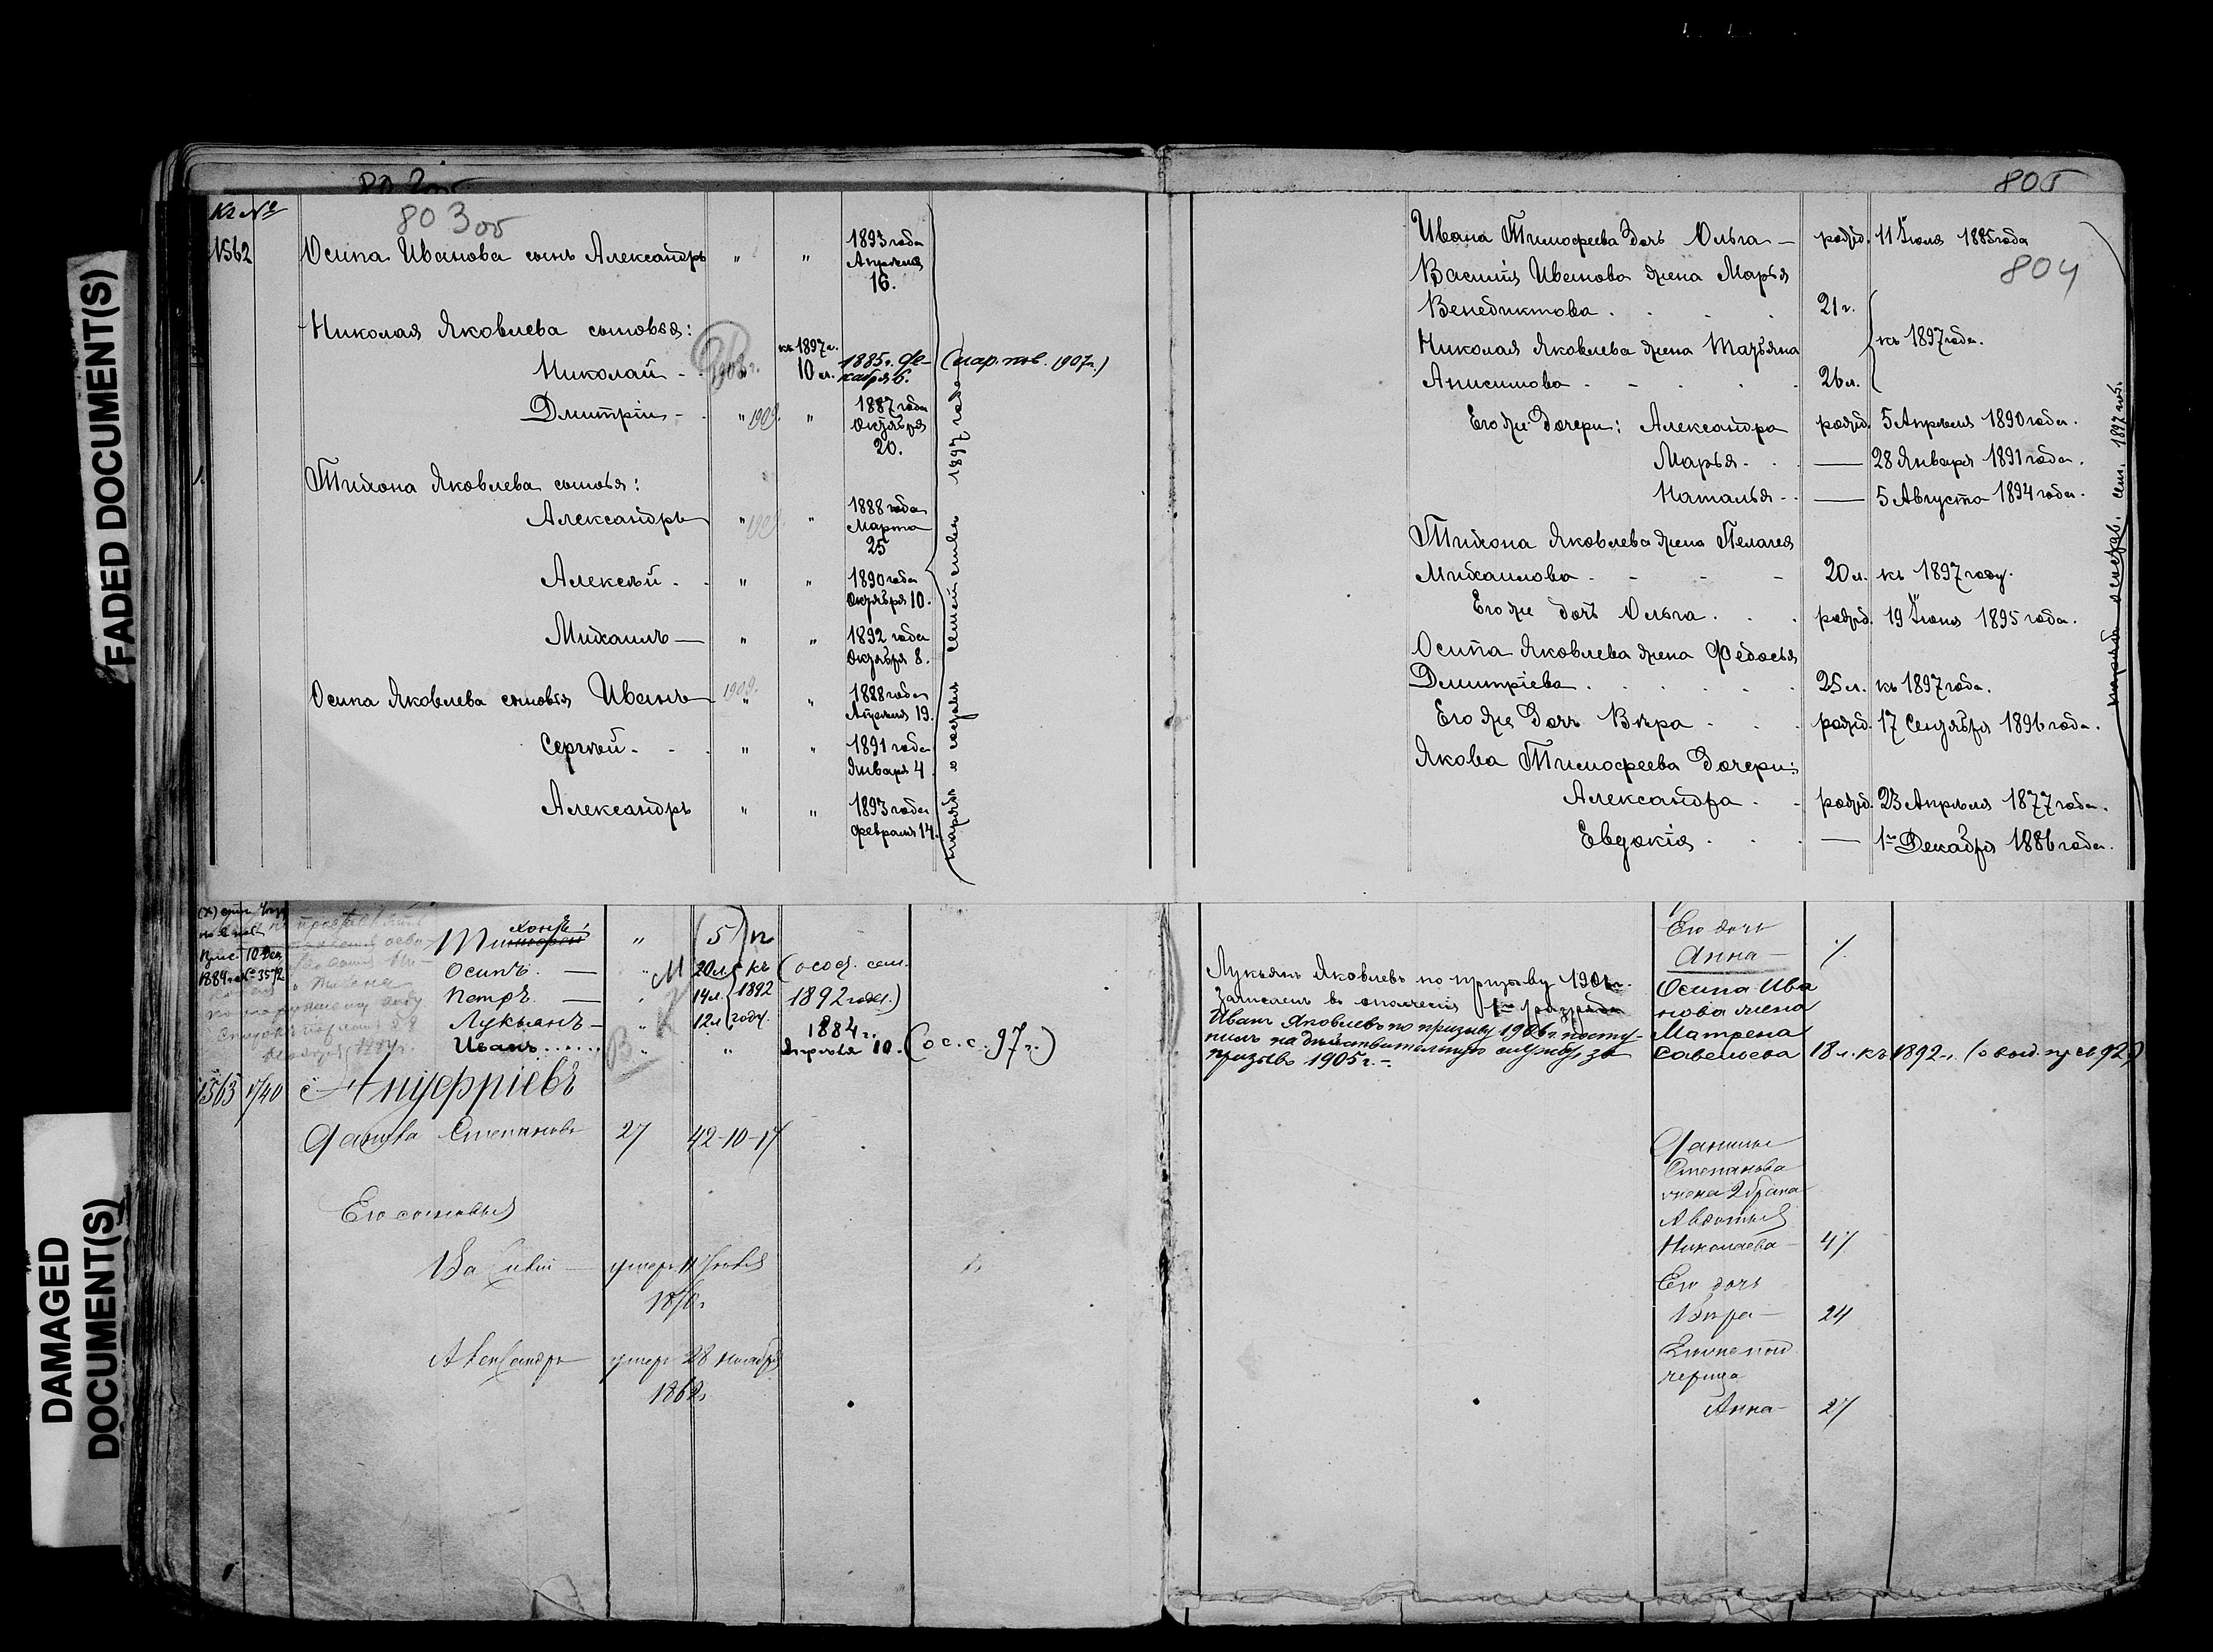 FADED DOCUMENT(S)
DAMAGED
DOCUMENT(S)
803 об
Кг №
1562
Осипа Иванова сынъ Александръ " " 1893 года
Апрѣля
16.
Николая Яковлева сыновья:
Николай - 1908г. къ 1897г. 10 л. 1885г. Де-
кабря 6. (нар. пов. 1907г.)
Дмитрій - " 1909. " 1887 года
Октября
20.
Тихона Яковлева сыновья:
Александръ " 1909. " 1888 года
Марта
25
Алексѣй - " " 1890 года
Октября 10.
Михаилъ — " " 1892 года
Октября 8.
Осипа Яковлева сыновья Иванъ 1909. " " 1888 года
Апрѣля 19.
Сергѣй - " " 1891 года
Января 4
Александръ " " 1893 года
Февраля 14.
нарядъ о составѣ семействъ 1897 года
Тихонъ " (5)
Осипъ. — " 20 л. къ (особ. сем.
Петръ. — " 14 л. 1892 1892 года.)
Лукьянъ — " 12 л. году.
Иванъ...... " " 1884 г.
Апрѣля 10. (о с. с. 97 г.)
1563 1/40 Ануфріевъ
Данила Степановъ 27 42-10-17
Его сыновья
Василій — умеръ
Александръ — умеръ 28 ноября
1862г.
805
804
Ивана Тимофеева дочь Ольга — рожд. 11 Іюля 1885 года
Василія Иванова жена Марья
Венедиктова . . . 21 г.
къ 1897 года.
Николая Яковлева жена Татьяна
Анисимова . - . . 26 л.
Его же дочери: Александра рожд. 5 Апрѣля 1890 года.
Марья - . — 28 Января 1891 года.
Наталья - . — 5 Августа 1894 года.
Тихона Яковлева жена Пелагея
Михайлова - - - - 20 л. къ 1897 году.
Его же дочь Ольга . . . рожд. 19 Іюня 1895 года.
Осипа Яковлева жена Федосья
Дмитріева . . . . . 25 л. къ 1897 года.
Его же дочь Вѣра . . . рожд. 17 Сентября 1896 года.
Якова Тимофеева дочери:
Александра . . рожд. 23 Апрѣля 1877 года.
Евдокія . . . — 1го Декабря 1886 года.
нарядъ о состав. сем. 1897 год.
Его дочь
Анна —
Лукьянъ Яковлевъ по призыву 1901г.
Зачисленъ въ ополченія 1го разряда
Иванъ Яковлевъ по призыву 1906г. посту-
пилъ на дѣйствительную службу за
призывъ 1905г. -
Осипа Ива
нова жена
Матрена
Савельева 18 л. къ 1892 г.
Данилы
Степанова
жена 2 брака
Авдотья
Николаева — 47
Его дочь
Вѣра — 24
Его же пад
черица
Анна — 27